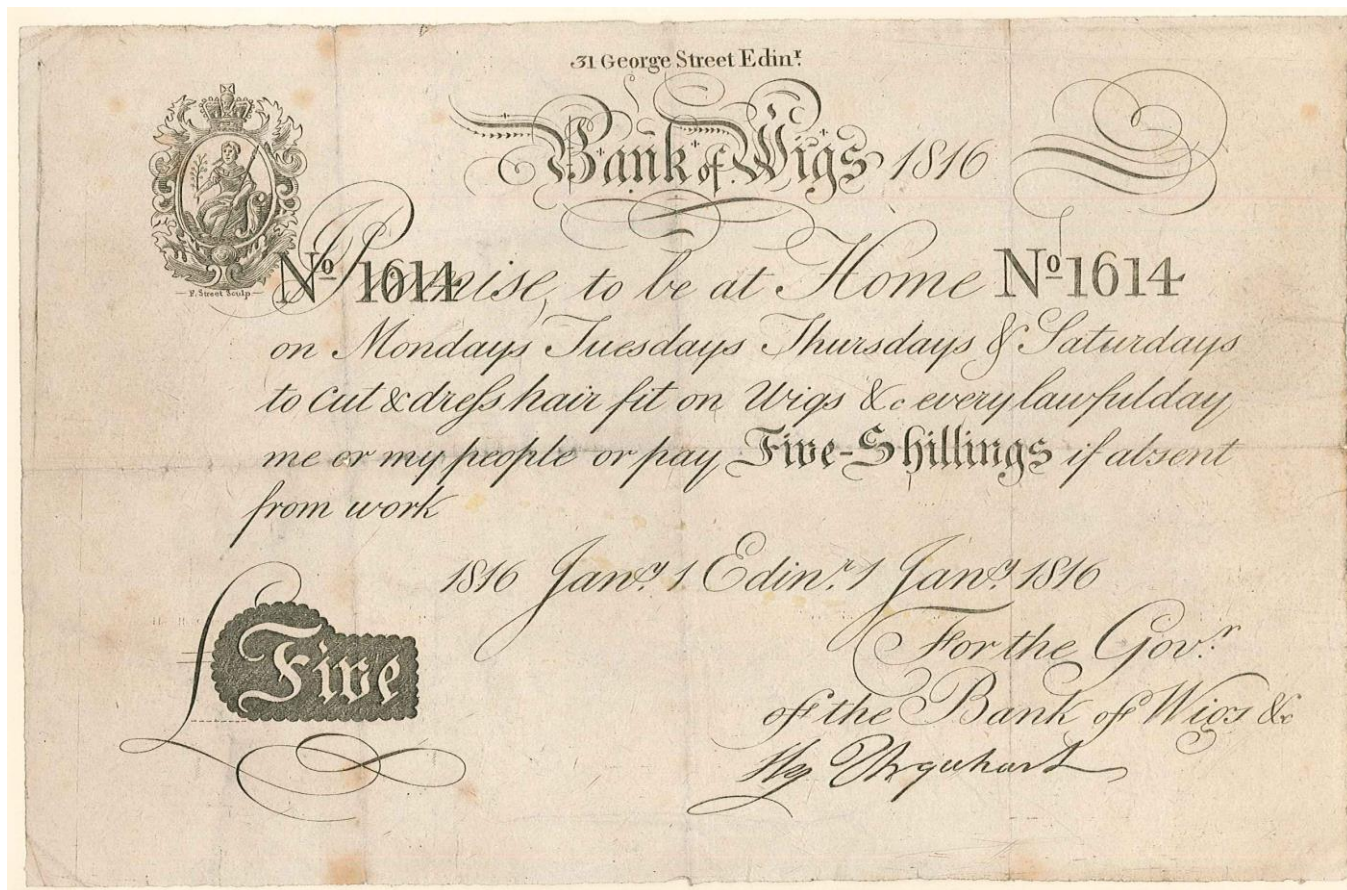 31 George Street Edinr.
Bank of Wigs 1816
F. Street Sculp.
No 1614 I Promise, to be at Home No 1614
on Mondays Tuesdays Thursdays & Saturdays
to cut & dress hair fit on Wigs &c every lawful day
me or my people or pay Five-Shillings if absent
from work
1816 Jany. 1. Edinr. 1 Jany. 1816
£ Five
For the Govr.
of the Bank of Wigs &c
Hy Urquhart